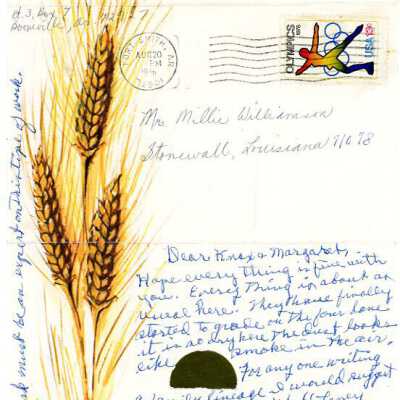 FORT SMITH, AR
AUG 20
PM
OLYMPICS
1976
USA 13c
Mrs Millie Williamson
Stonewall, Louisiana 71078
Dear Knox & Margaret,
Hope every thing is fine with
you. Every thing is about as
usual here. They have finally
started to grade on the four lane
it is so dry here the dust looks
like smoke in the air.
For any one writing
a family lineage I would suggest
must be an expert on this type of work.